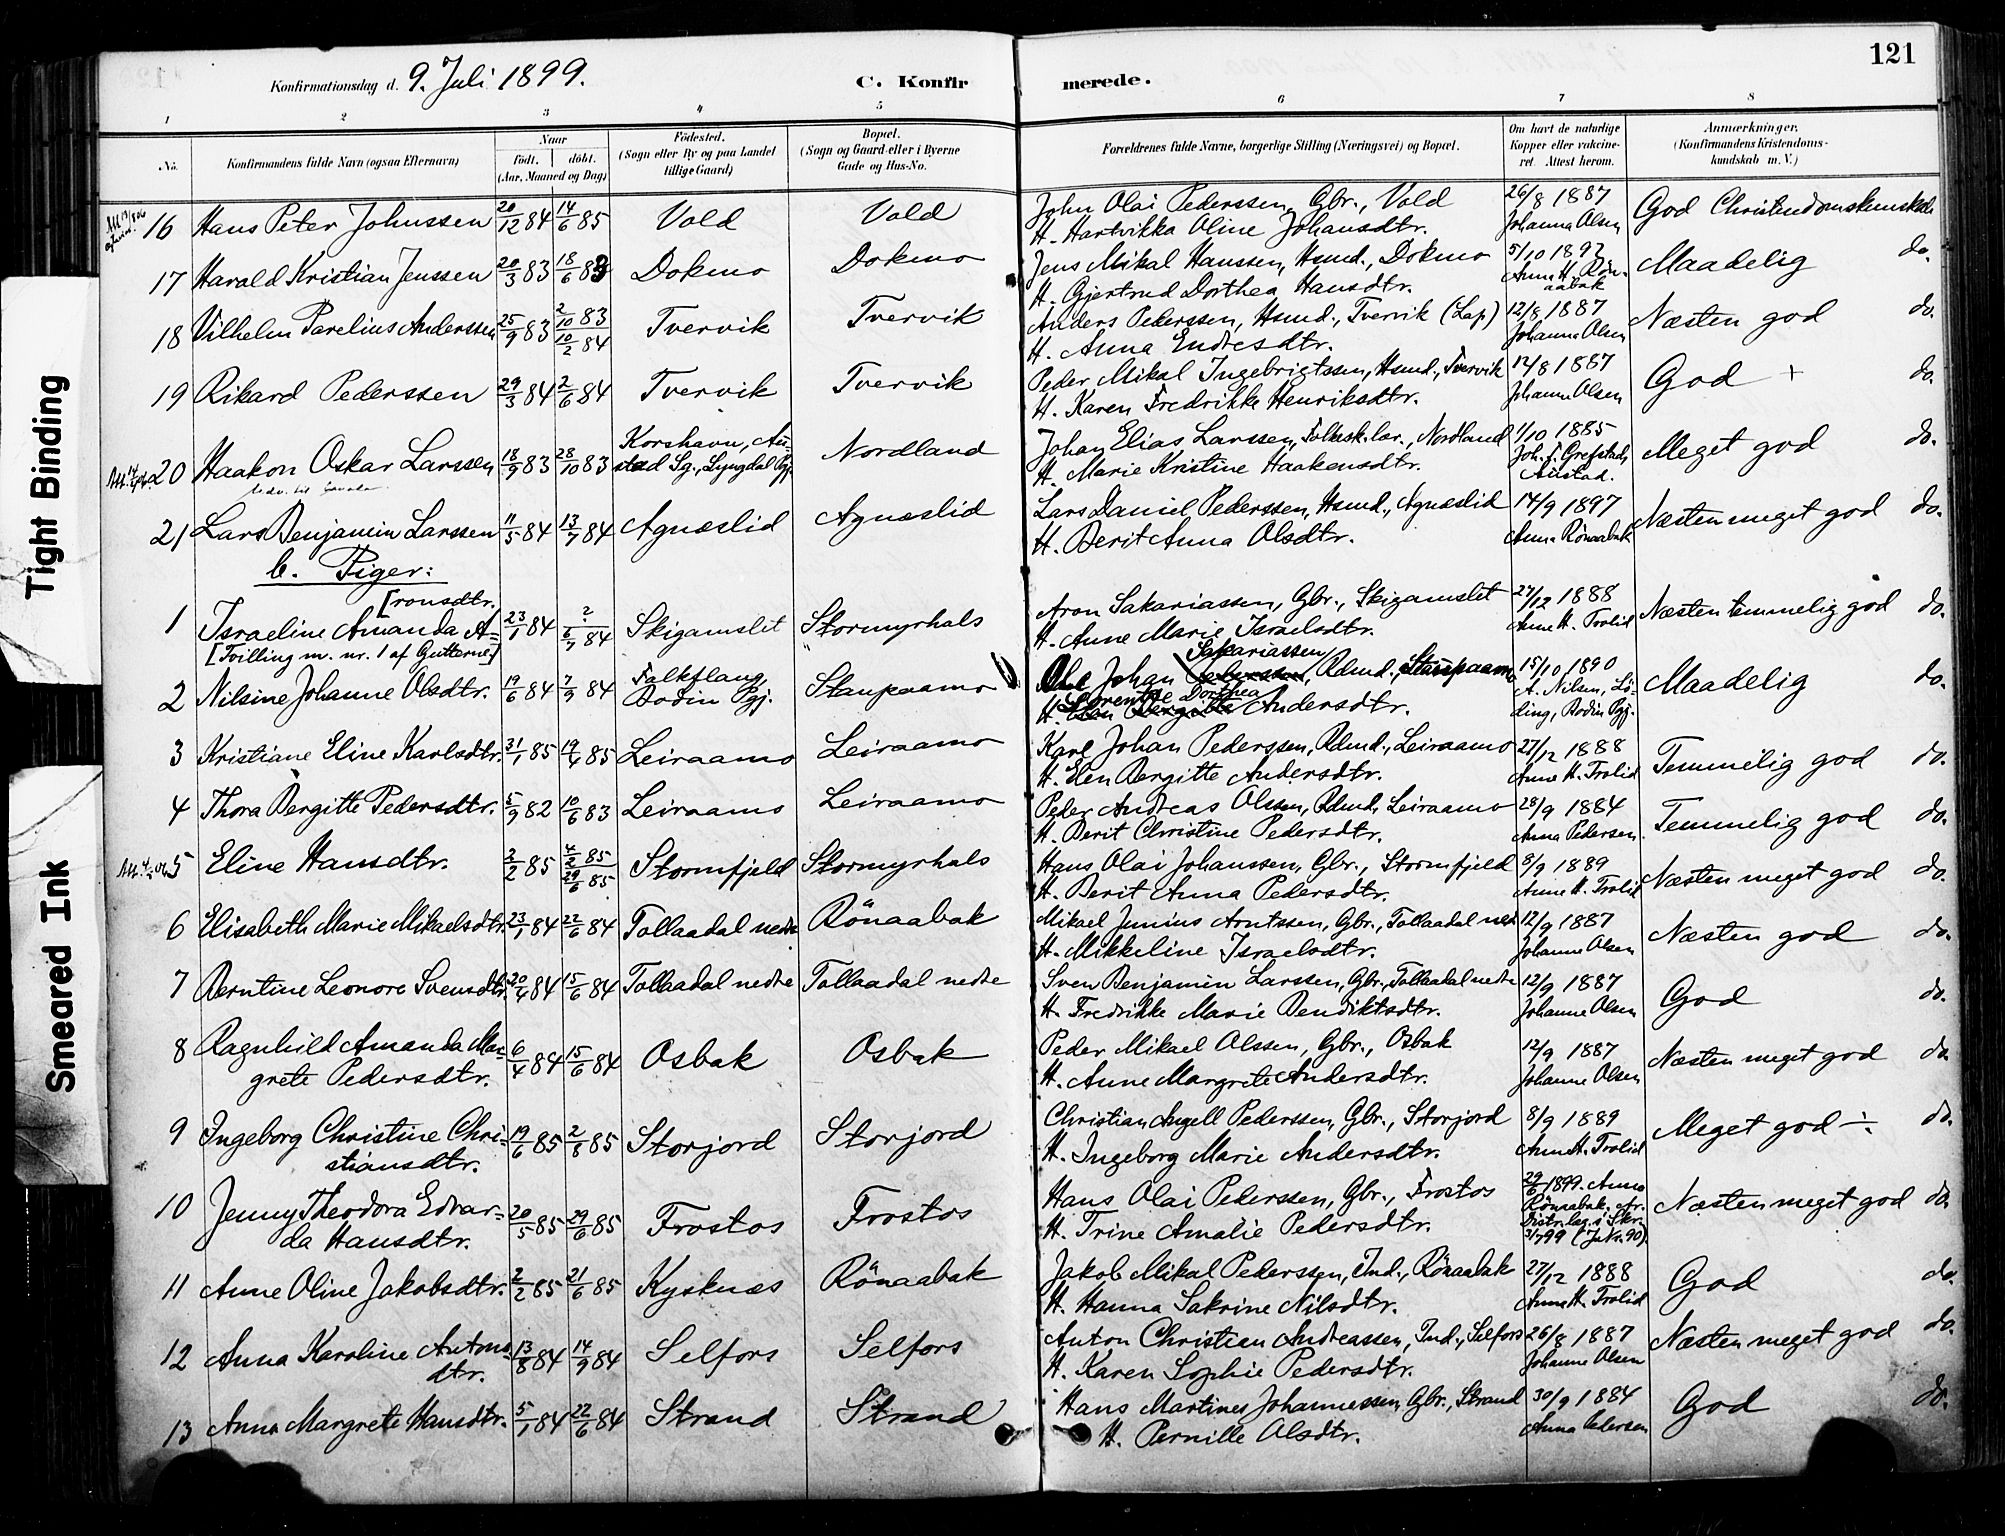 Konfirmationsdag d. 9. Juli 1899. C. Konfirmerede. 121
1 2 3 4 5 6 7 8
No. Konfirmandens fulde Navn (ogsaa Efternavn) Naar født. døbt. (Aar, Maaned og Dag) Födested. (Sogn eller By og paa Landet tillige Gaard) Bopæl. (Sogn og Gaard eller i Byerne Gade og Hus-No. Forældrenes fulde Navne, borgerlige Stilling (Næringsvei) og Bopæl. Om havt de naturlige Kopper eller vakcineret. Attest herom. Anmærkninger. (Konfirmandens Kristendomskundskab m. V.)
16 Hans Peter Johnssen 20/12 84 14/6 85 Vold Vold John Olai Pederssen, Gbr., Vold 26/8 1887 God Christendomskundskab
H. Hartvikka Oline Johansdtr. Johanna Olsen
17 Harald Kristian Jenssen 20/3 83 18/6 83 Dokmo Dokmo Jens Mikal Hanssen, Hsmd., Dokmo 5/10 1892 Maadelig do.
H. Gjertrud Dorthea Hansdtr. Anne H. Rönaabak
18 Vilhelm Parelius Anderssen 25/9 83 2/10 83 10/2 84 Tvervik Tvervik Anders Pederssen, Hsmd., Tvervik (Lap) 12/8 1887 Næsten god do.
H. Anna Endresdtr. Johanna Olsen
19 Rikard Pederssen 29/3 84 2/6 84 Tvervik Tvervik Peder Mikal Ingebrigtssen, Hsmd., Tvervik 12/8 1887 God + do.
H. Karen Fredrikke Henriksdtr. Johanne Olsen
20 Haakon Oskar Larssen 18/9 83 28/10 83 Korshavn, Austad Sg., Lyngdal Pgj. Nordland Johan Elias Larssen, Folksk.lær., Nordland 1/10 1885 Meget god do.
H. Marie Kristine Haakensdtr. Joh. F. Grefstad, Austad.
21 Lars Benjamin Larssen 11/5 84 13/7 84 Agnæslid Agnæslid Lars Daniel Pederssen, Hsmd., Agnæslid 14/9 1897 Næsten meget god do.
H. Berit Anna Olsdtr. Anna Rönaabak
b. Piger:
[ronsdtr.
1 Israeline Amanda A= 23/1 84 ? 6/7 84 Skigamslet Stormyrhals Aron Sakariassen, Gbr., Skigamslet 27/12 1888 Næsten temmelig god do.
[Tvilling m. nr. 1 af Gutterne] H. Anne Marie Israelsdtr. Anne H. Trolid
2 Nilsine Johanne Olsdtr. 19/6 84 7/9 84 Falkflaug, Bodin Pgj. Staupaamo Ole Johan Sakariassen, Rdmd., Staupaamo 15/10 1890 Maadelig do.
H. Lorentse Dorthea Andersdtr. A. Nilsen, Löding, Bodin Pgj.
3 Kristiane Eline Karlsdtr. 31/1 85 19/4 85 Leiraamo Leiraamo Karl Johan Pederssen, Rdmd., Leiraamo 27/12 1888 Temmelig god do.
H. Elen Bergitte Andersdtr. Anne H. Trolid
4 Thora Bergitte Pedersdtr. 5/9 82 10/6 83 Leiraamo Leiraamo Peder Andreas Olssen, Rdmd, Leiraamo 28/9 1884 Temmelig god do.
H. Berit Christine Pedersdtr. Anna Pedersen
5 Eline Hansdtr. 2/2 85 4/2 85 29/6 85 Stormfjeld Stormyrhals Hans Olai Johanssen, Gbr., Stormfjeld 8/9 1889 Næsten meget god do.
H. Berit Anna Pedersdtr. Anne H. Trolid
6 Elisabeth Marie Mikaelsdtr. 23/1 84 22/6 84 Tollaadal nedre Rönaabak Mikael Junius Arntssen, Gbr., Tollaadal ned. 12/9 1887 Næsten god do.
H. Mikkeline Israelsdtr. Johanne Olsen
7 Berntine Leonore Svensdtr. 20/4 84 15/6 84 Tollaadal nedre Tollaadal nedre Sven Benjamin Larssen, Gbr., Tollaadal nedre 12/9 1887 God do.
H. Fredrikke Marie Bendiktsdtr. Johanne Olsen
8 Ragnhild Amanda Mar= 6/4 84 15/6 84 Osbak Osbak Peder Mikael Olssen, Gbr., Osbak 12/9 1887 Næsten meget god do
grete Pedersdtr. H. Anne Margrete Andersdtr. Johanne Olsen
9 Ingeborg Christine Chri= 19/6 85 2/8 85 Storjord Storjord Christian Angell Pederssen, Gbr., Storjord 8/9 1889 Meget god ÷ do.
stiansdtr. H. Ingeborg Marie Andersdtr. Anne H. Trolid
10 Jenny Theodora Edvar= 20/5 85 29/6 85 Frostos Frostos Hans Olai Pederssen, Gbr., Frostos 29/6 1899. Anna Næsten meget god do.
da Hansdtr. H. Trine Amalie Pedersdtr. Rönaabak, Distr.læg. i Skr. 3/7 99 (J.Nr. 90).
11 Anne Oline Jakobsdtr. 2/2 85 21/6 85 Kysknæs Rönaabak Jakob Mikal Pederssen, Ind., Rönaabak 27/12 1888 God do.
H. Hanna Sakrine Nilsdtr. Anne H. Trolid
12 Anna Karoline Antons= 13/8 84 14/9 84 Selfors Selfors Anton Christian Andreassen, Ind., Selfors 26/8 1887 Næsten meget god do.
dtr. H. Karen Sophie Pedersdtr. Johanne Olsen
13 Anna Margrete Hansdtr. 5/1 84 22/6 84 Strand Strand Hans Martines Johannessen, Gbr., Strand 30/9 1884 God do.
H. Pernille Olsdtr. Anna Pedersen
Tight Binding
Smeared Ink